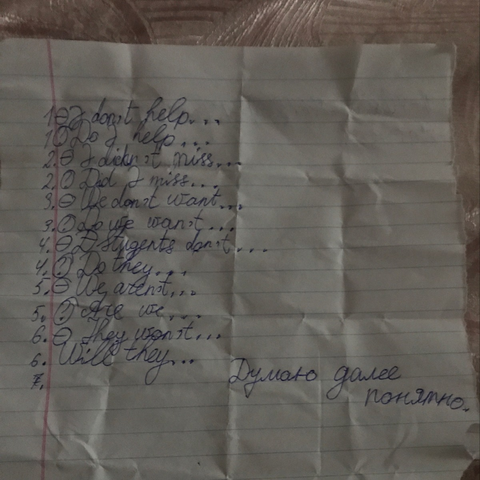 1. ⊖ I don't help...
1. ? Do I help...
2. ⊖ I didn't miss...
2. ? Did I miss...
3. ⊖ We don't want...
3. ? Do we want...
4. ⊖ Students don't...
4. ? Do they...
5. ⊖ We aren't...
5. ? Are we...
6. ⊖ They won't...
6. Will they...
7.
Думаю далее
понятно.